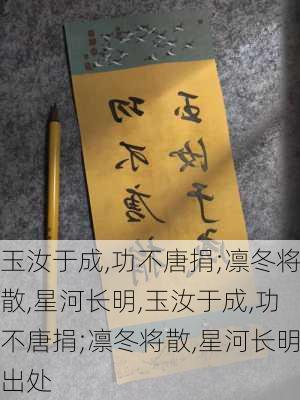 玉汝于成
功不唐捐
玉汝于成,功不唐捐;凛冬将
散,星河长明,玉汝于成,功
不唐捐;凛冬将散,星河长明
出处